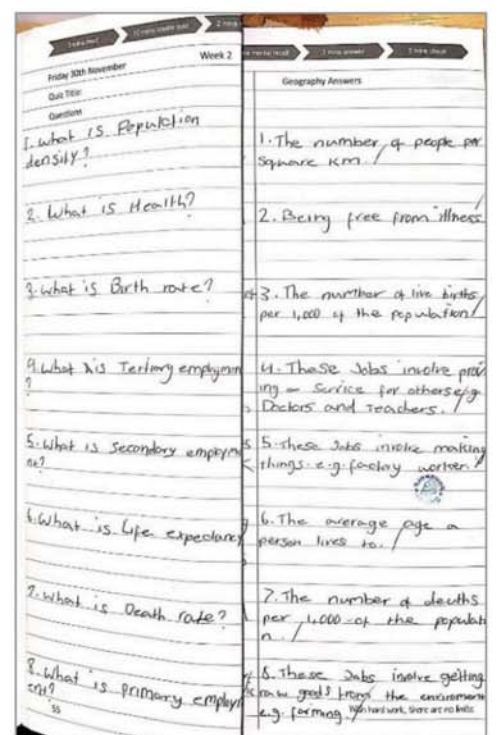 5 mins read
10 mins mental recall
2 mins
Friday 30th November
Week 2
Quiz Title:
Questions
1. What is Population
density?
2. What is Health?
3. What is Birth rate?
4. What is Tertiary employmen
?
5. What is Secondary employme
nt?
6. What is Life expectancy
7. What is Death rate?
8. What is primary employm
ent?
55
mental recall
5 mins answer
2 mins check
Geography Answers
1. The number of people per
Square Km.
2. Being free from illness
3. The number of live births
per 1,000 of the population
4. These Jobs involve provi
ing a Service for others e.g.
Doctors and Teachers.
5. These Jobs involve making
things. e.g. factory worker.
6. The average age a
person lives to.
7. The number of deaths
per 1,000 of the populati
n.
8. These Jobs involve getting
raw goods from the enviroment
e.g. farming.
With hard work, there are no limits